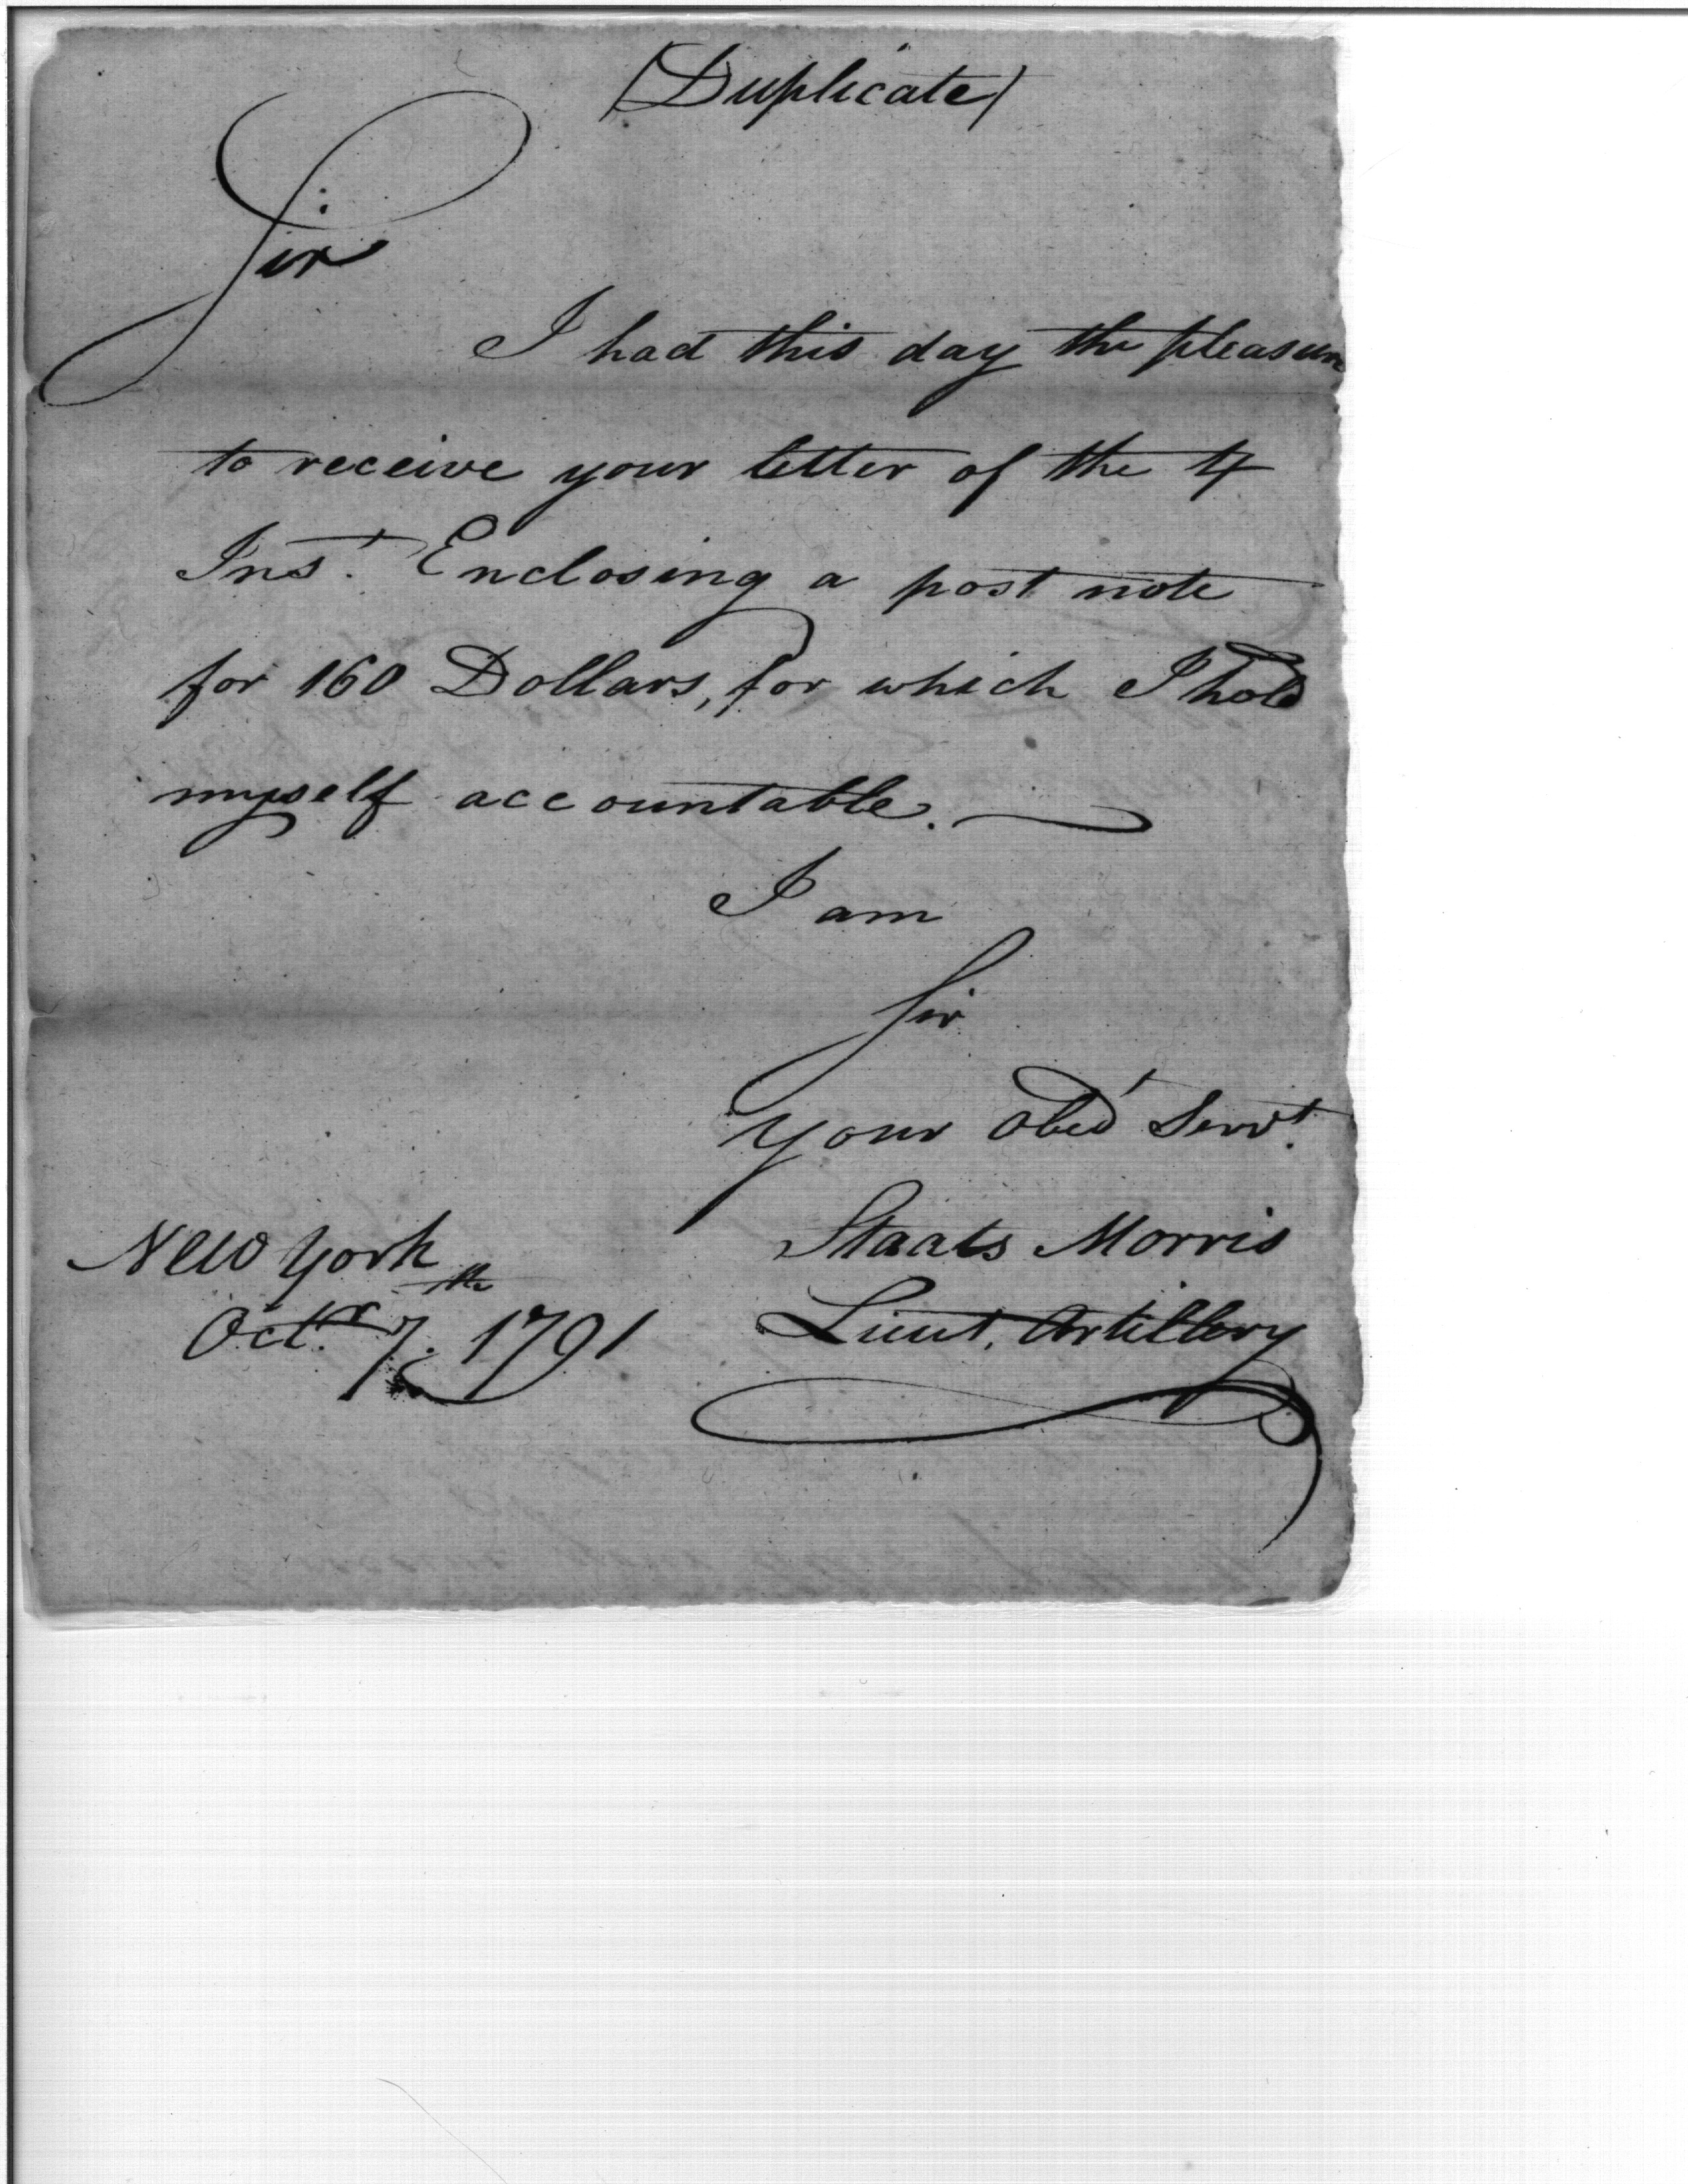 (Duplicate)
Sir
I had this day the pleasure
to receive your letter of the 4
Inst. Enclosing a post note
for 160 Dollars, for which I hold
myself accountable.
I am
Sir
Your Obed Servt.
Staats Morris
Lieut. Artillery
New York
Octr. 7th. 1791